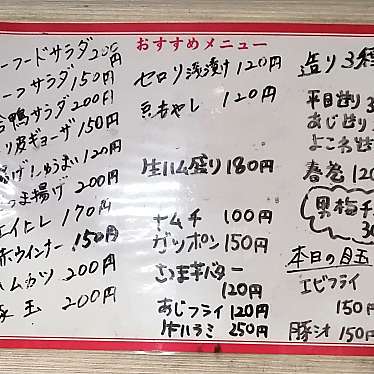 おすすめメニュー
ーフードサラダ 200円
ーフサラダ 150円
合鴨サラダ 200円
リ皮ギョーザ 150円
揚げしゅうまい 120円
つま揚げ 200円
エイヒレ 170円
赤ウインナー 150円
ハムカツ 200円
玉 200円
セロリ浅漬け 120円
豆もやし 120円
生ハム盛り 180円
ナムチ 100円
ガツポン 150円
さつま芋バター
120円
あじフライ 120円
牛ハラミ 250円
造り3種
平目造り
あじ造り
よこ
春巻 120
黒梅チ
30
本日の目玉
エビフライ
150円
豚シオ 150円